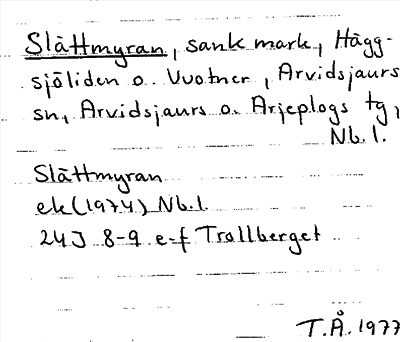 Slåttmyran, sank mark, Hägg-
sjöliden o. Vuotner, Arvidsjaurs
sn, Arvidsjaurs o. Arjeplogs tg,
Nb. l.
Slåttmyran
ek (1974) Nb.l
24J 8-9 e-f Trollberget
T.Å. 1977